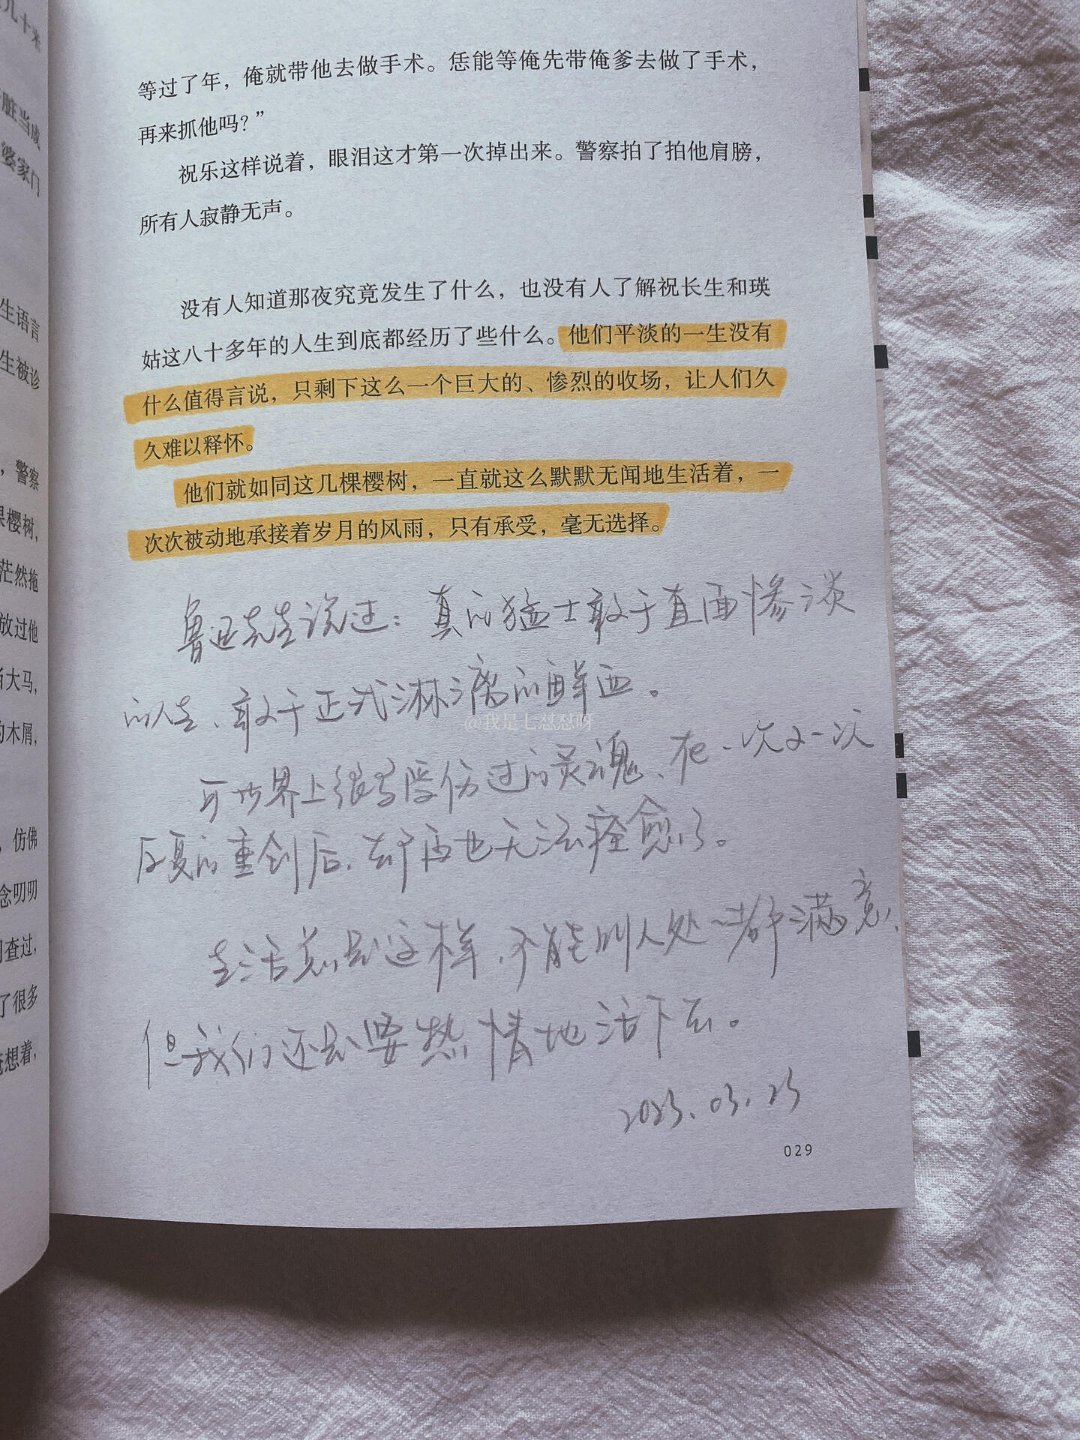 几十米
脏当成
婆家门
生语言
生被诊
，警察
果樱树，
茫然拖
放过他
大马，
的木屑，
，仿佛
念叨叨
查过，
了很多
想着，
等过了年，俺就带他去做手术。恁能等俺先带俺爹去做了手术，
再来抓他吗？”
祝乐这样说着，眼泪这才第一次掉出来。警察拍了拍他肩膀，
所有人寂静无声。
没有人知道那夜究竟发生了什么，也没有人了解祝长生和瑛
姑这八十多年的人生到底都经历了些什么。他们平淡的一生没有
什么值得言说，只剩下这么一个巨大的、惨烈的收场，让人们久
久难以释怀。
他们就如同这几棵樱树，一直就这么默默无闻地生活着，一
次次被动地承接着岁月的风雨，只有承受，毫无选择。
鲁迅先生说过：真的猛士敢于直面惨淡
的人生、敢于正视淋漓的鲜血。
@我是七怼怼呀
可世界上很多受伤过的灵魂、在一次又一次
反复的重创后，却再也无法痊愈了。
生活总是这样，不能叫人处处都满意，
但我们还是要热情地活下去。
2023.03.23
029